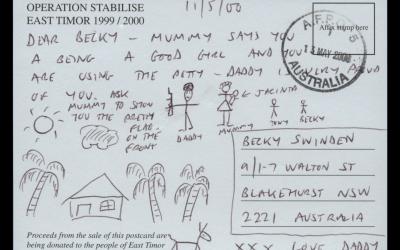 OPERATION STABILISE
EAST TIMOR 1999 / 2000
11/5/00
Affix stamp here
A.F.P.O. 5
13 MAY 2000
AUSTRALIA
DEAR BECKY - MUMMY SAYS YOU
A BEING A GOOD GIRL AND YOU
ARE USING THE POTTY - DADDY IS VERY PROUD
OF YOU. ASK
MUMMY TO SHOW
YOU THE PRETTY
FLAG
ON THE
FRONT
JACINTA
DADDY
MUMMY
TONY
BECKY
BECKY SWINDEN
9/1-7 WALTON ST
BLAKEHURST NSW
2221 AUSTRALIA
XXX LOVE DADDY
Proceeds from the sale of this postcard are
being donated to the people of East Timor